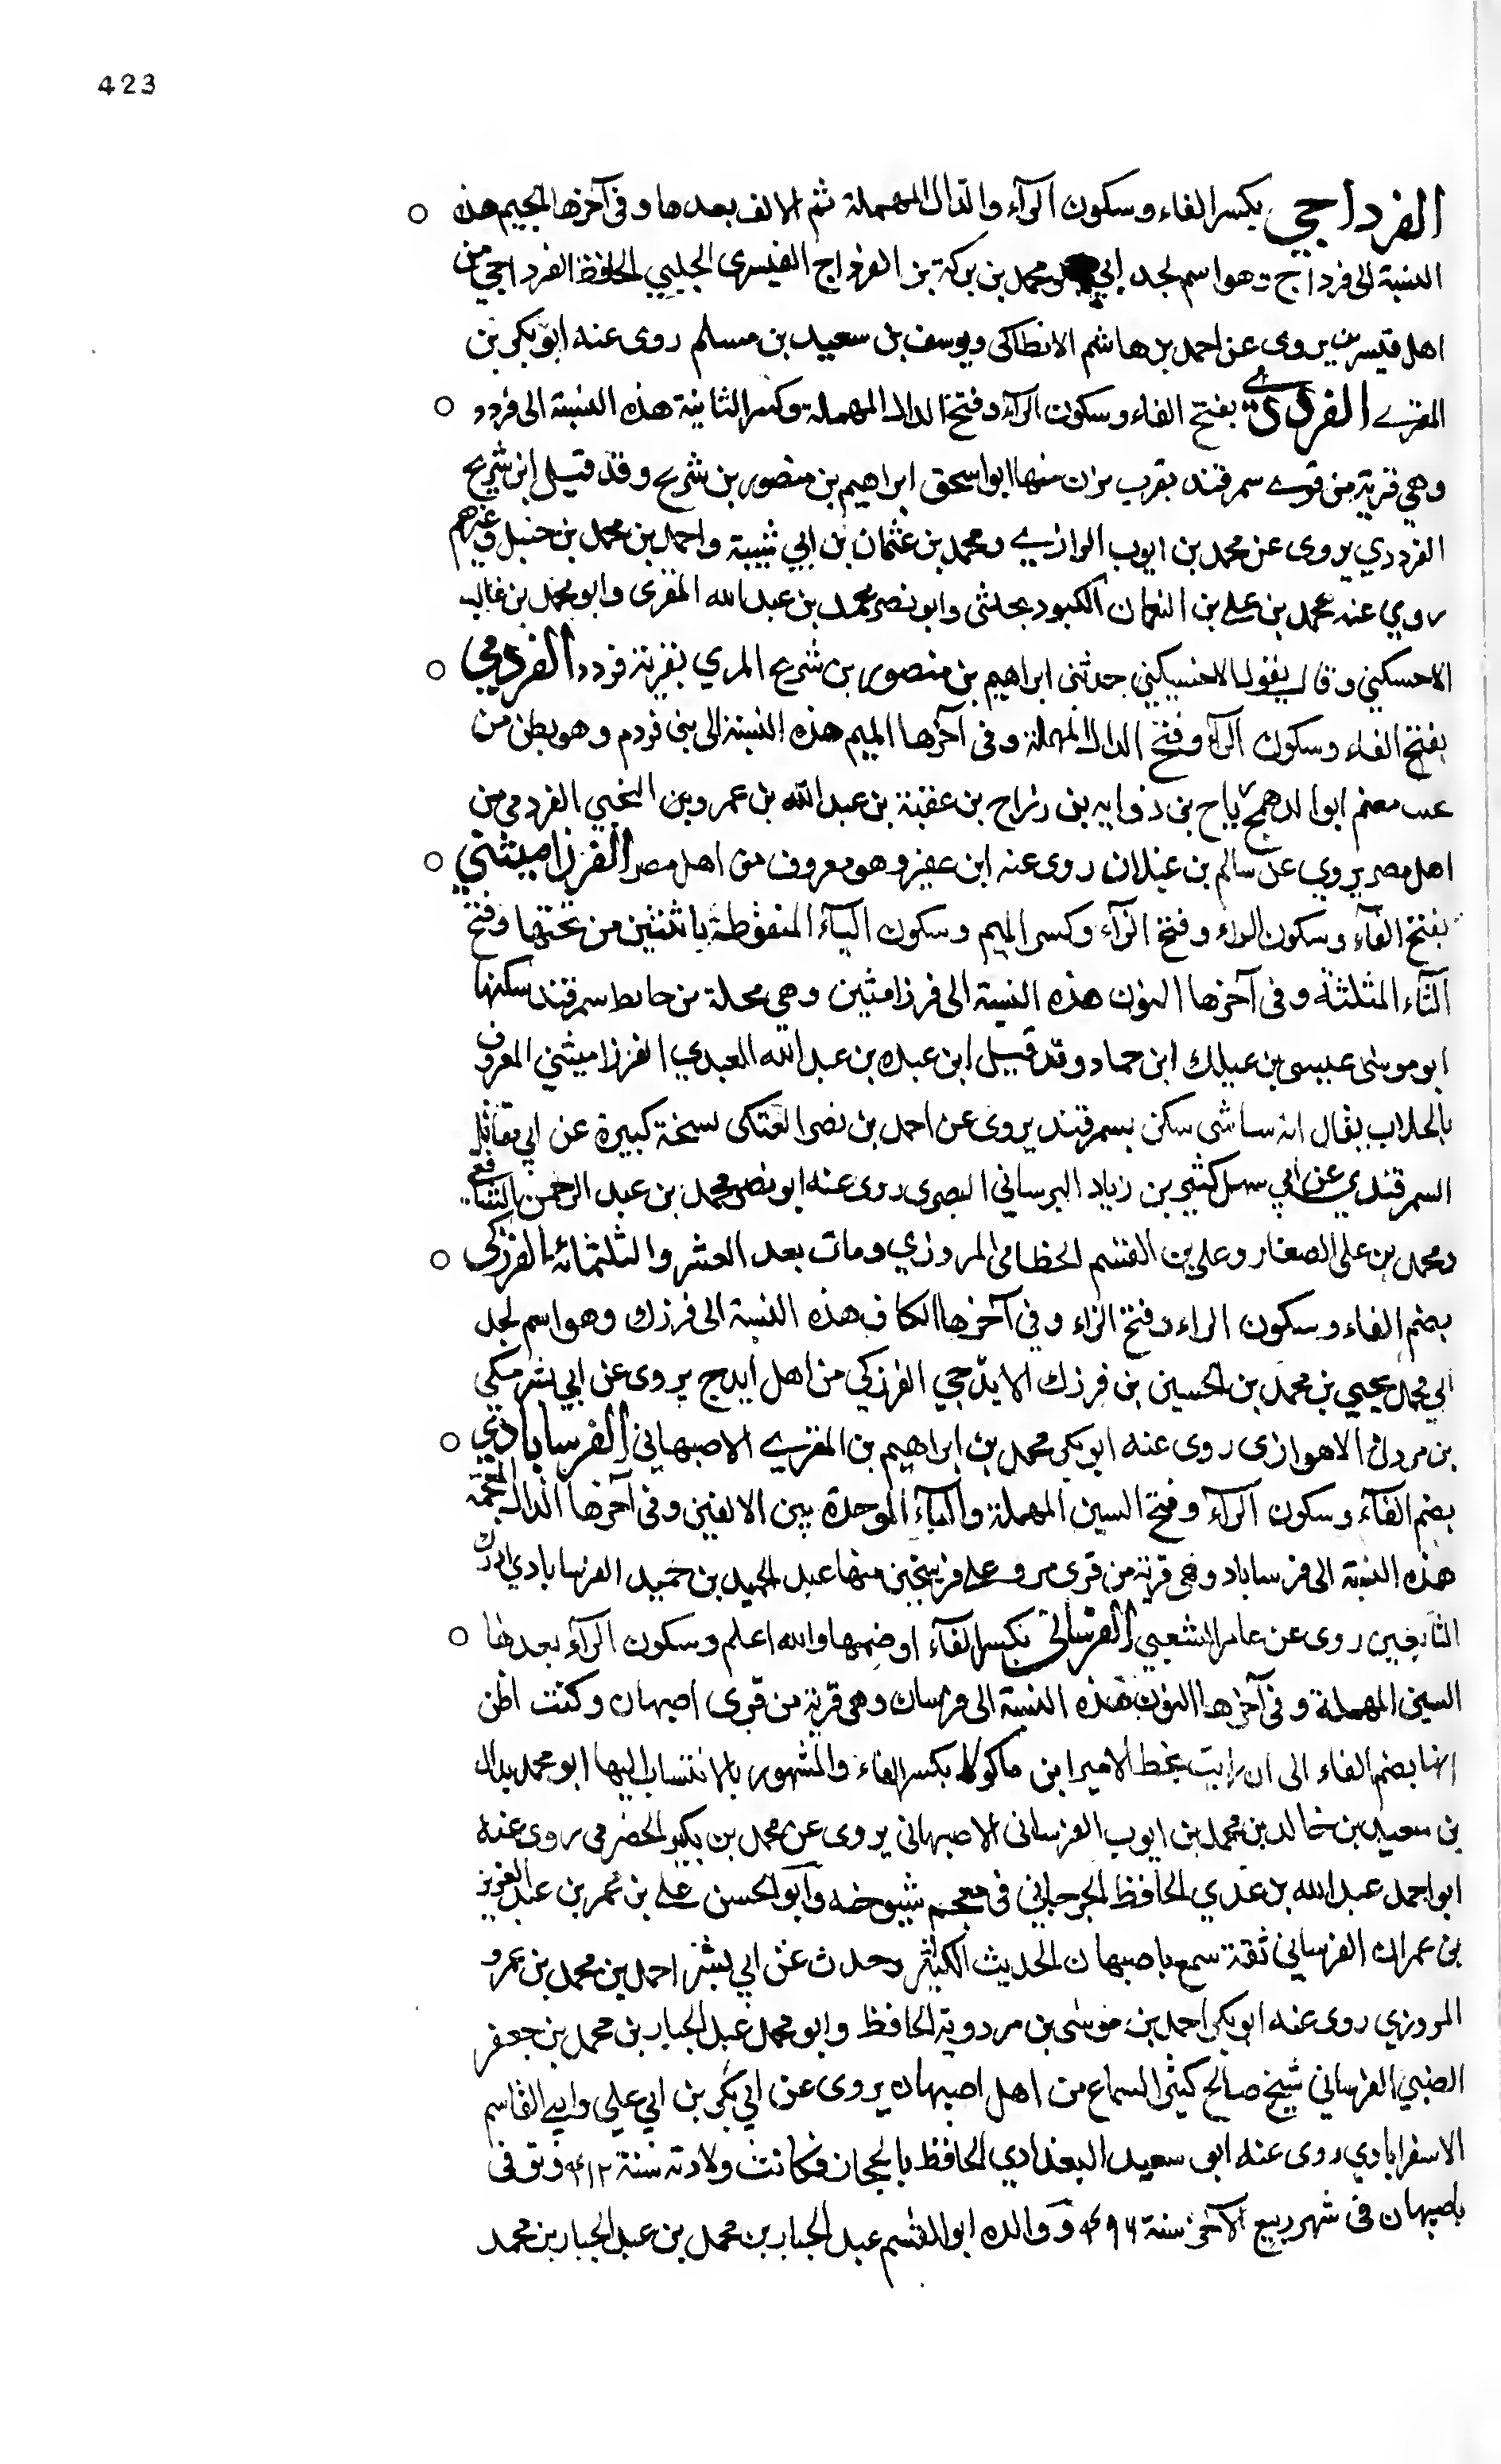 423
الفرداجي بكسر الفاء وسكون الرآء والدال المهملة ثم الالف بعدها وفى آخرها الجيم هذه
النسبة الى فرداج وهو اسم لجد ابي محمد بن بركة بن الفرداج القنسرى الحلبي الحافظ الفرداجي من
اهل قنسرين يروى عن احمد بن هاشم الانطاكى ويوسف بن سعيد بن مسلم روى عنه ابو بكر بن
المقرے الفرددى بفتح الفاء وسكون الرآء وفتح الدال المهملة وكسر الثانية هذه النسبة الى فردد
وهي قرية من قرے سمرقند بقرب منها ابو اسحق ابراهيم بن منصور بن شريح وقد قيل ابن شريح
الفرددي يروى عن محمد بن ايوب الرازے ومحمد بن عثمان بن ابي شيبة واحمد بن محمد بن حنبل وغيرهم
روي عنه محمد بن علے بن النعمان الكبودنجكثى وابو نصر محمد بن عبد الله المقرى وابو محمد بن غالب
الاحسكني وقال يقول الاخسيكثي حدثنى ابراهيم بن منصور بن شريح المري بقرية فردد الفردمي
بفتح الفاء وسكون الرآء وفتح الدال المهملة وفى آخرها الميم هذه النسبة الى بنى فردم وهو بطن من
منهم ابو الدهمج رياح بن ذوابه بن رزاح بن عقبة بن عبد الله بن عمرو بن الفردمي من
اهل مصر يروي عن سالم بن غيلان روى عنه ابن عفير وهو معروف من اهل مصر الفرزاميثني
بفتح الفآء وسكون الراء وفتح الزآء وكسر الميم وسكون اليآء المنقوطة باثنتين من تحتها وفتح
الثآء المثلثة وفى آخرها النون هذه النسبة الى فرزامثين وهي محلة من حائط سمرقند سكنها
ابو موسى عيسى بن عبيلك ابن حماد وقد قيل ابن عبده بن عبد الله العبدي الفرزاميثني المعروف
بالحلاب يقال انه شاشى سكن بسمرقند يروى عن احمد بن نصر العتكى نسخة كبيرة عن ابي مقاتل
السمرقندي عن ابي سهل كثير بن زياد البرساني البصرى روى عنه ابو نصر محمد بن عبد الرحمن الشافعي
ومحمد بن على الصفار وعلي بن القسم الخطابى المروزي ومات بعد العشر والثلثمائة الفرزكى
بضم الفاء وسكون الراء وفتح الزاء وفي آخرها الكاف هذه النسبة الى فرزك وهو اسم لجد
ابي محمد يحيي بن محمد بن الحسين بن فرزك الايدجي الفرزكي من اهل ايدج يروى عن ابي بشر مكي
بن مردك الاهوازى روى عنه ابو بكر محمد بن ابراهيم بن المقرے الاصبهاني الفرساباذي
بضم الفآء وسكون الرآء وفتح السين المهملة والباء الموحدة بين الالفين وفى آخرها الدال المعجمة
هذه النسبة الى فرساباد وهى قرية من قرى مرو على فرسخين منها عبد الحميد بن حميد الفرساباذي ادرك
التابعين روى عن عامر الشعبي الفرسانى بكسر الفآء او ضمها والله اعلم وسكون الرآء بعدها
السين المهملة وفى آخرها النون هذه النسبة الى فرسان وهى قرية من قرى اصبهان وكنت اظن
انها بضم الفاء الى ان رايت بخط الامير ابن ماكولا بكسر الفاء والمشهور بالانتساب اليها ابو محمد بدال
بن سعيد بن خالد بن محمد بن ايوب الفرسانى الاصبهانى يروى عن محمد بن بكير الحضرمى روى عنه
ابو احمد عبد الله بن عدي الحافظ الجرجاني فى معجم شيوخه وابو الحسن علے بن عمر بن عبد العزيز
بن عمران الفرساني ثقة سمع باصبهان الحديث الكثير وحدث عن ابي بشر احمد بن محمد بن عمرو
المروزي روى عنه ابو بكر احمد بن موسى بن مردوية الحافظ وابو محمد عبد الجبار بن محمد بن جعفر
الضبي الفرساني شيخ صالح كثير السماع من اهل اصبهان يروى عن ابي بكر بن ابي علي وابے القاسم
الاسفراباذي روى عنه ابو سعيد البغدادي الحافظ بالحجاز فكانت ولادته سنة ٤١٢ وتوفى
باصبهان فى شهر ربيع الآخر سنة ٤٩٦ و والده ابو القسم عبد الجبار بن محمد بن عبد الجبار بن محمد